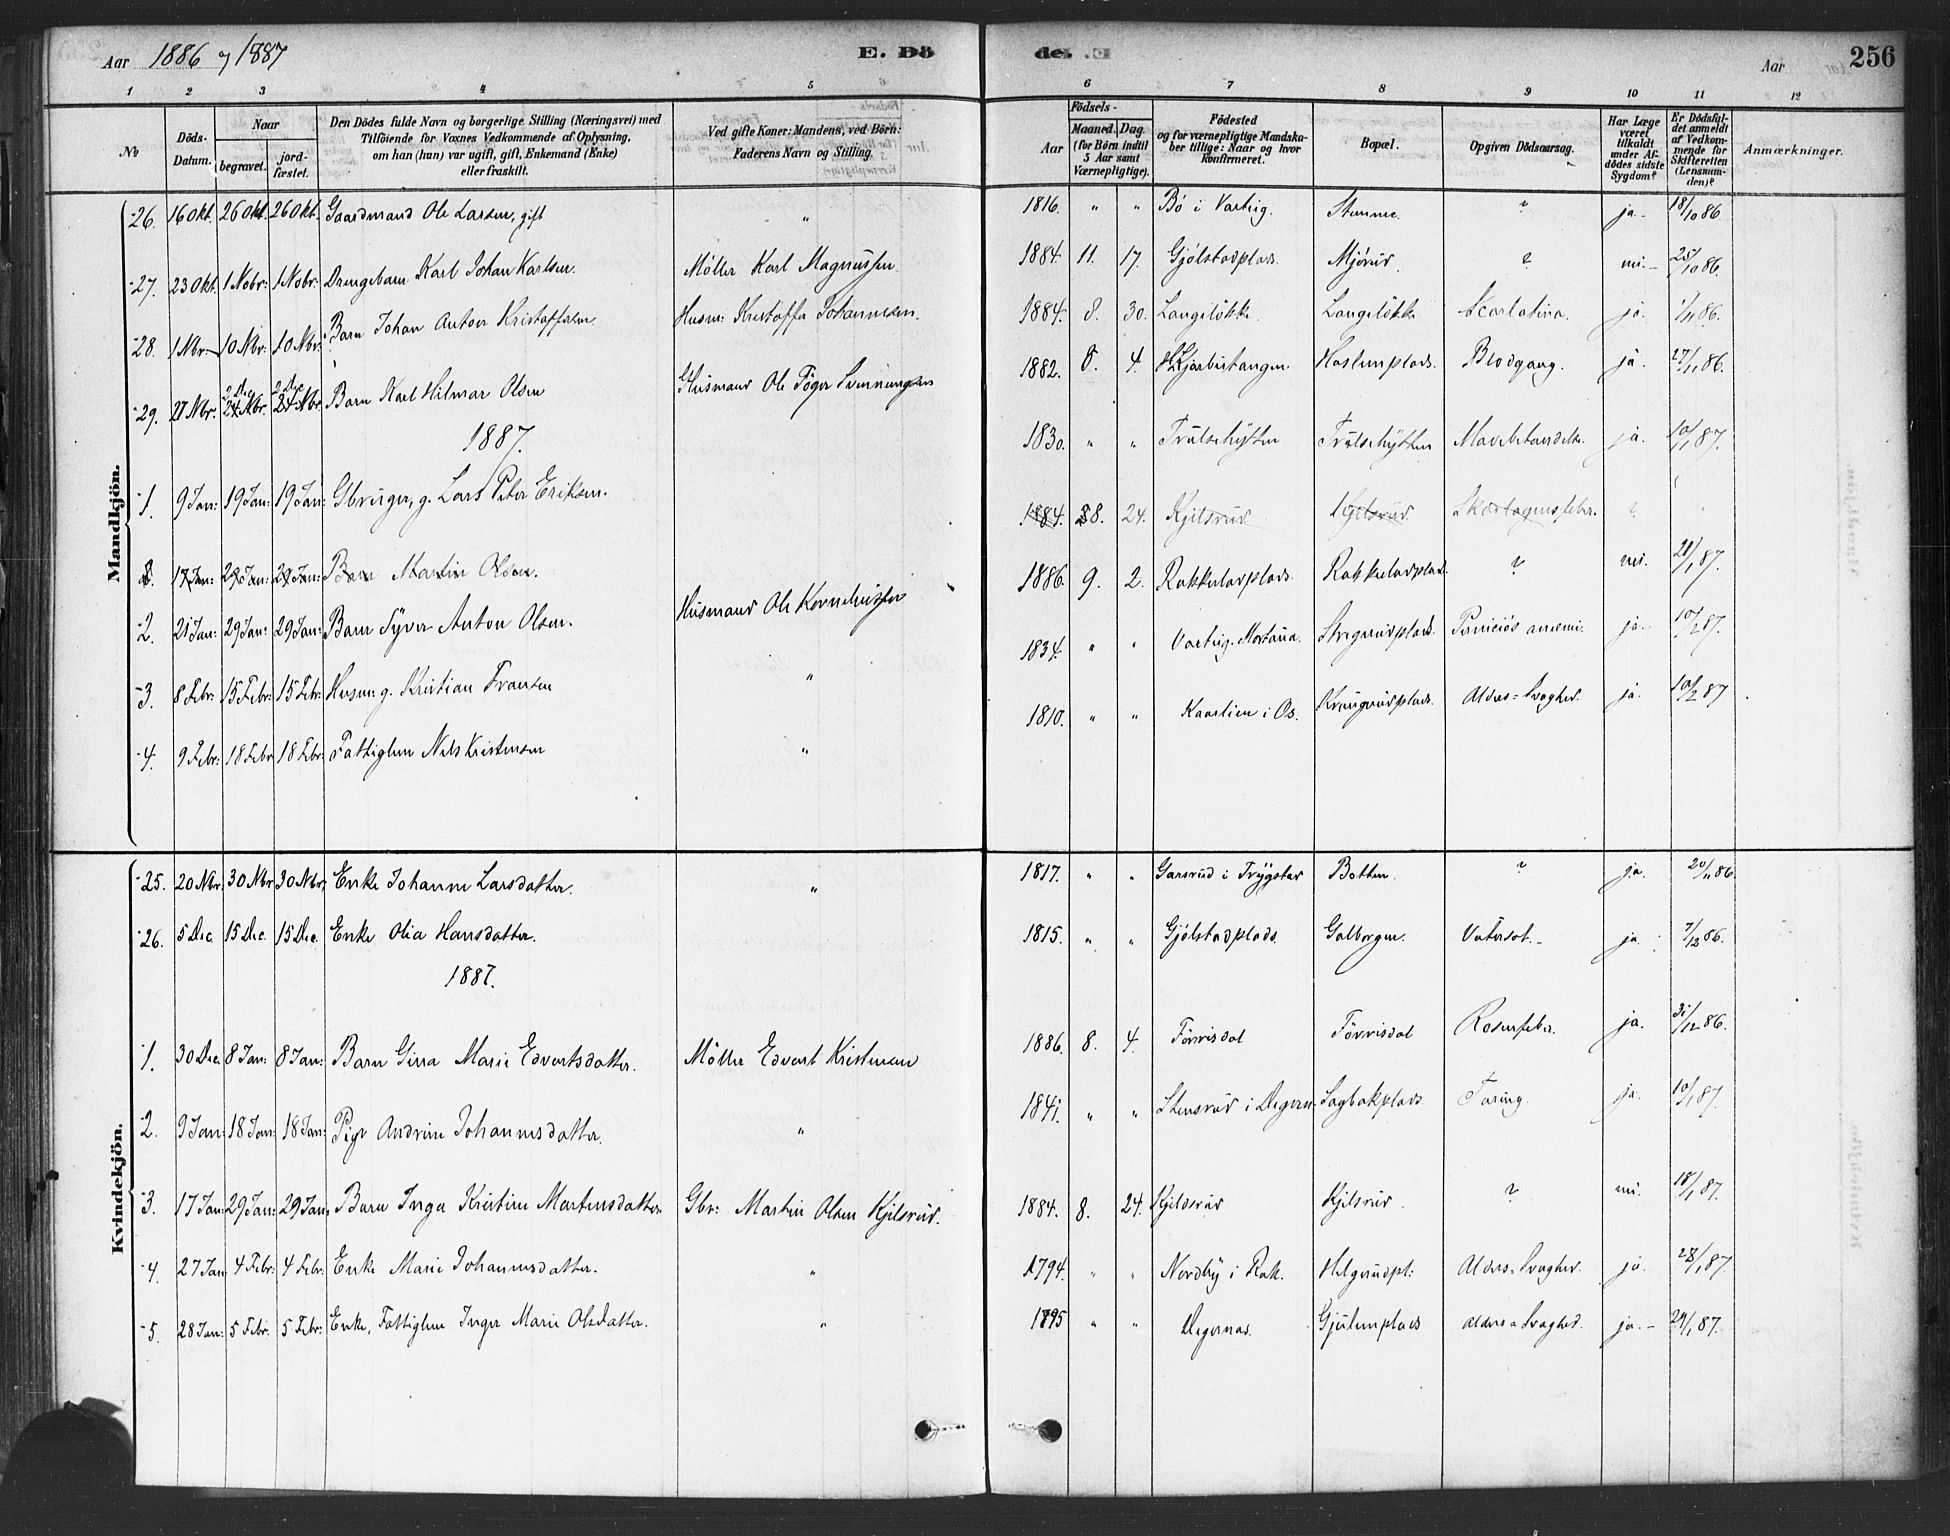 Aar 1886 og 1887
E. Dö
de. E
Aar
256
1 2 3 4 5 6 7 8 9 10 11 12
No
Döds-Datum.
Naar
begravet.
jord-fæstet.
Den Dödes fulde Navn og borgerlige Stilling (Næringsvei) med
Tilföiende for Voxnes Vedkommende af Oplysning,
om han (hun) var ugift, gift, Enkemand (Enke)
eller fraskilt.
Ved gifte Koner: Mandens, ved Börn:
Faderens Navn og Stilling.
Födsels-
Aar
Maaned. Dag.
(for Börn indtil
5 Aar samt
Værnepligtige).
Födested
og for værnepligtige Mandska-
ber tillige: Naar og hvor
konfirmeret.
Bopæl.
Opgiven Dödsaarsag.
Har Læge
været
tilkaldt
under Af-
dödes sidste
Sygdom?
Er Dödsfal-
det anmeldt
af Vedkom-
mende for
Skifteretten
(Lensman-
den)?
Anmærkninger.
Mandkjön.
26. 16 Okt. 26 Okt. 26 Okt. Gaardmand Ole Larsen, gift " 1816. " " Bö i Varteig. Stamme. ? ja. 18/10 86.
27. 23 Okt. 1 Nobr: 1 Nobr: Drengebarn Karl Johan Karlsen. Möller Karl Magnussen. 1884. 11. 17. Gjölstadplads. Mjörud. ? nei. 25/10 86.
28. 1 Nbr. 10 Nbr: 10 Nbr: Barn Johan Anton Kristoffersen. Husm: Kristoffer Johannesen. 1884. 8. 30. Langelökke. Langelökke Scarlatina. ja. 1/11 86.
29. 21 Nbr. 2 Dec 24 Nbr. 2 Dec 24 Nbr. Barn Karl Hilmar Olsen Husmand Ole Töger Svenningsen 1882. 8. 4. Haslumplads. Blodgang. ja. 27/11 86.
1887.
1. 9 Jan: 19 Jan: 19 Jan: Gbruger, g. Lars Peter Eriksen. 1830. " " Trulsehytten Trulsehytten ja. 10/1 87.
17 Jan: 29 Jan: 29 Jan: Barn Martin Olsen. 1884. 8. 24. Kjilsrud Kjelsrud. Skarlagensfeber. ?
2. 21 Jan: 29 Jan: 29 Jan: Barn Syver Anton Olsen. Husmand Ole Korneliussen 1886. 9. 2. Rakkeladplads. Rakkeladplads. ? nei. 21/1 87.
3. 8 Febr: 15 Febr: 15 Febr: Husm: g. Kristian Fransen " 1834. " " Varteig. Perniciös anæmi. ja. 10/2 87.
4. 9 Febr: 18 Febr 18 Febr: Fattiglem Nils Kristensen " 1810. " " Kaaslien i Os. Krusgrudplads. Alders=Svaghed. ja. 10/2 87
Kvindekjön.
25. 20 Nbr. 30 Nbr. 30 Nbr. Enke Johanne Larsdatter. " 1817. " " Garsrud i Trygstad Botten. ? ja. 20/11 86.
26. 5 Dec. 15 Dec. 15 Dec. Enke Olia Hansdatter. 1815. " " Gjölstadplads. Galborgen. Vatersot. ja. 7/12 86.
1887.
1. 30 Dec. 8 Jan: 8 Jan: Barn Gina Marie Edvartsdatter. Möller Edvart Kristensen 1886. 8. 4. Törrisdal Törrisdal Rosenfeber. ja. 31/12 86.
2. 9 Jan: 18 Jan: 18 Jan: Pige Andrine Johannesdatter. " 1841. " " Stensrud i Degernes Sagbakplads. Tæring. ja. 10/1 87.
3. 17 Jan: 29 Jan: 29 Jan: Barn Inga Kristine Martinsdatter Gbr: Martin Olsen Kjilsrud. 1884. 8. 24. Kjildsrud Kjelsrud. ? nei. 18/1 87.
4. 27 Jan: 4 Febr: 4 Febr: Enke Marie Johannesdatter. " 1794. " " Nordby i Rak. Helgerudpl: Alders=Svaghed. ja 28/1 87.
5. 28 Jan: 5 Febr. 5 Febr: Enke, Fattiglem Inger Marie Olsdatter. " 1795 " " Degernæs. Gjulemplads Alders=Svaghed. ja. 29/1 87.